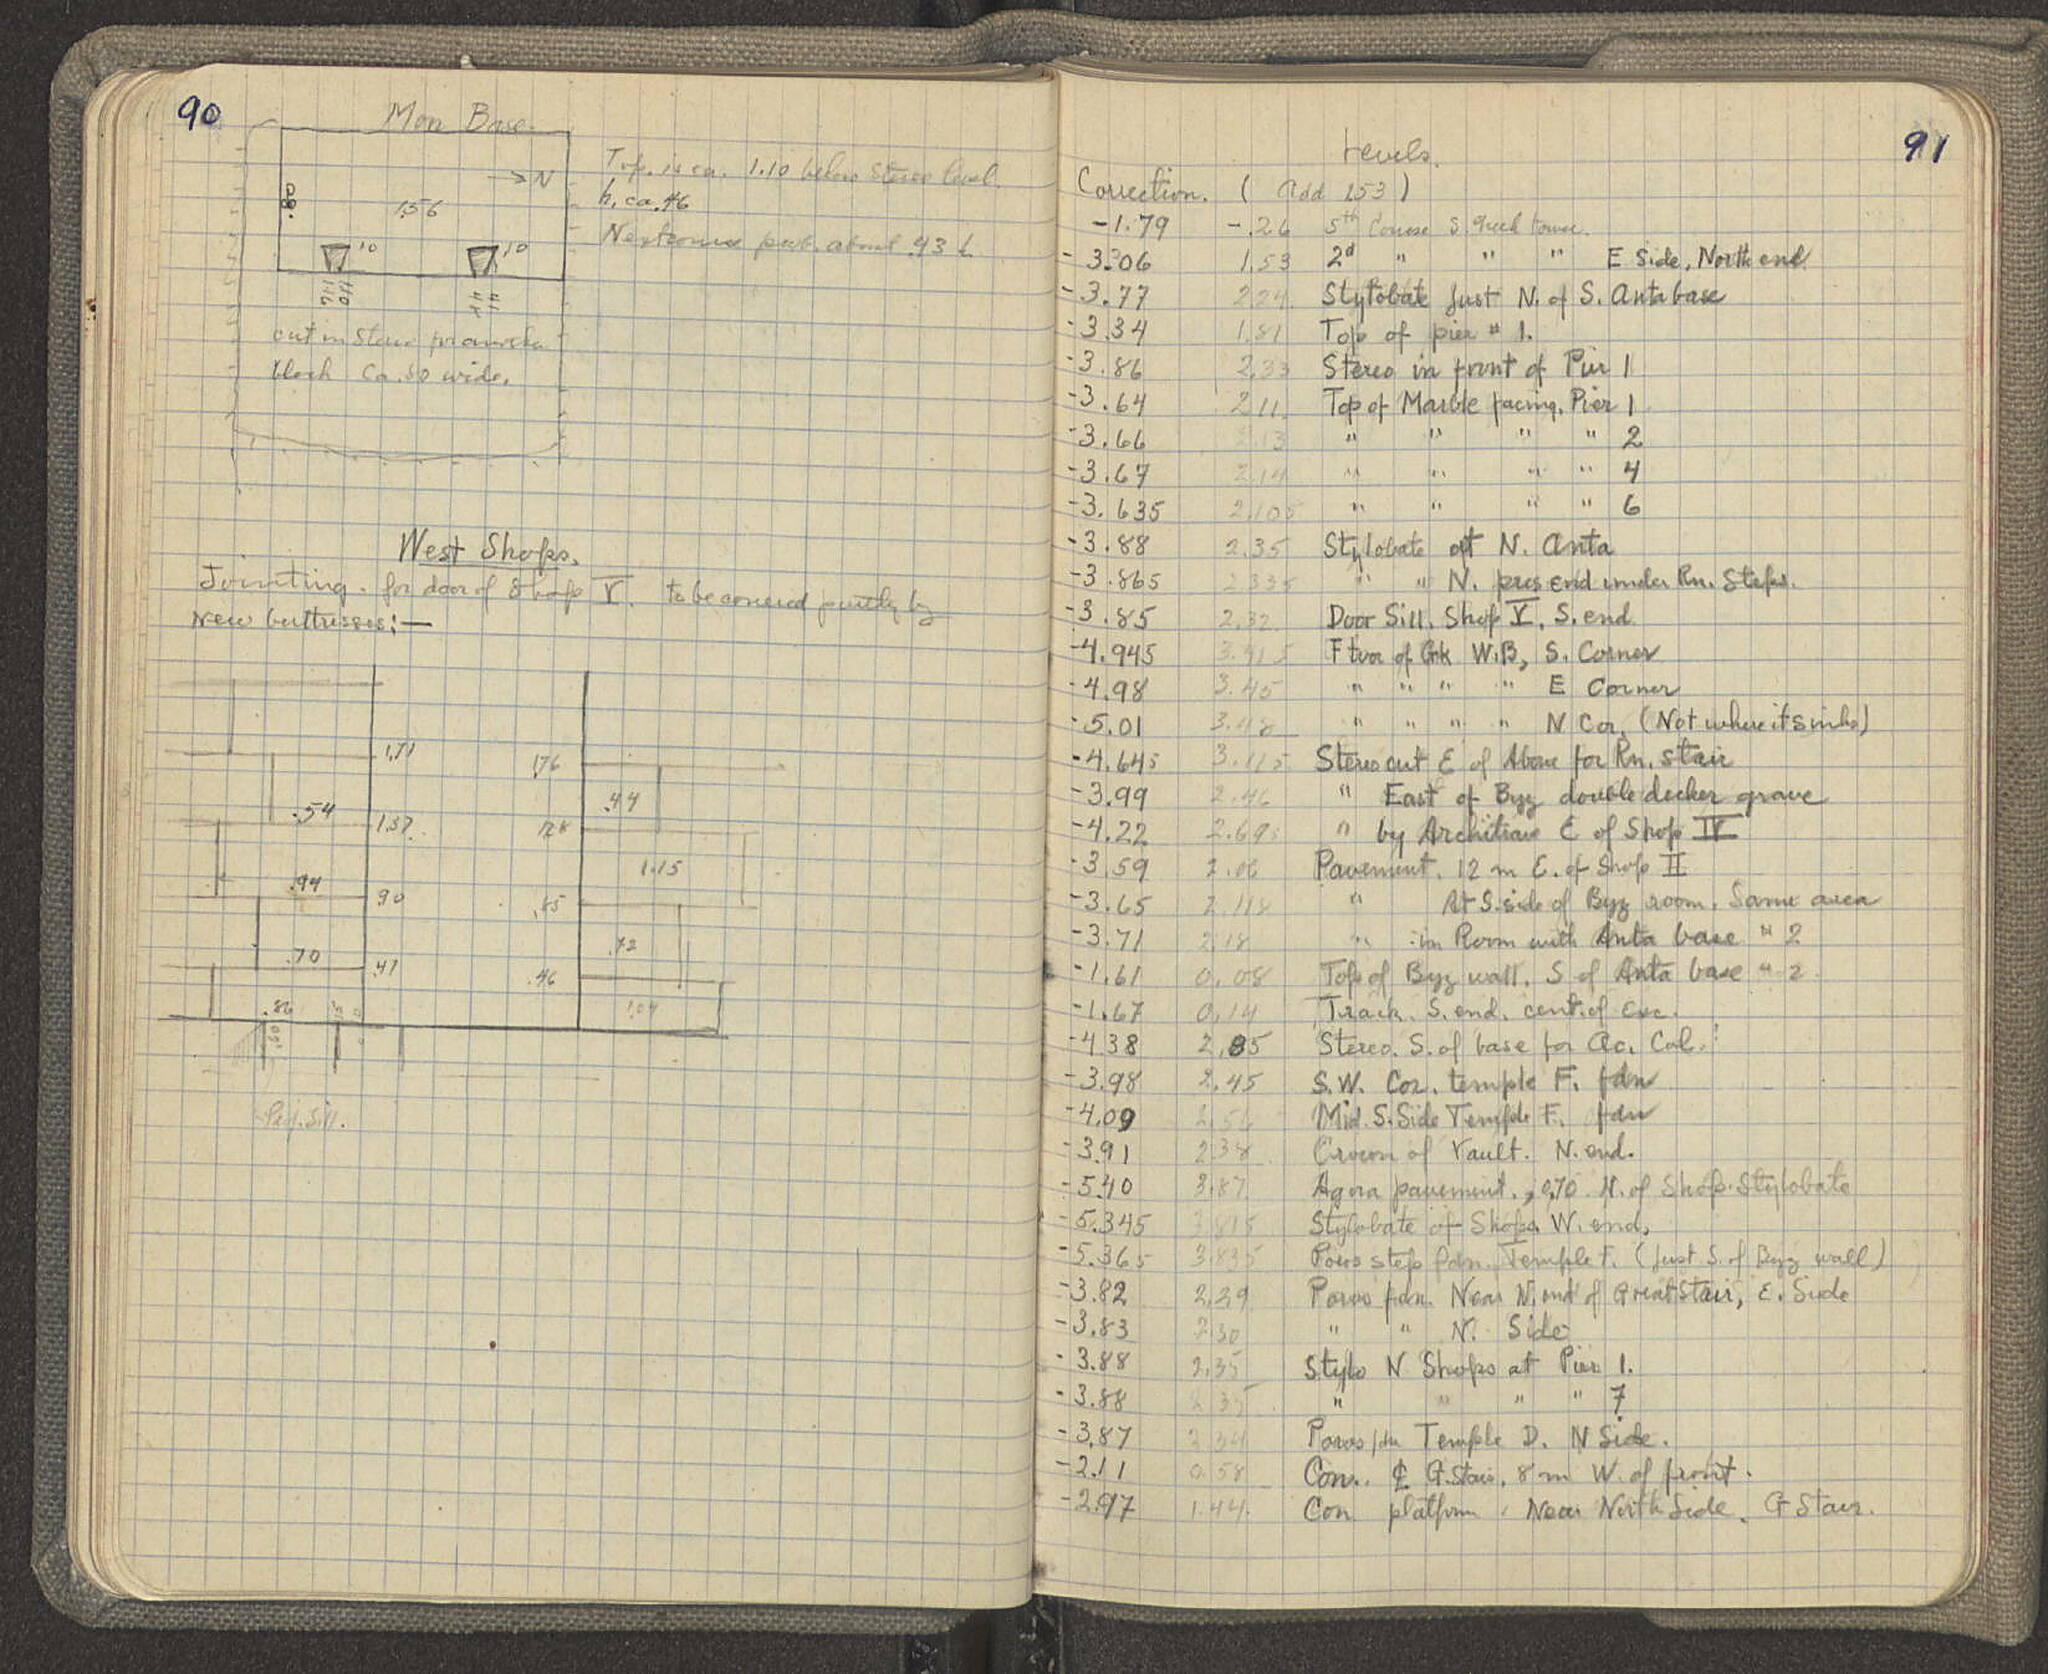 90
Mon Base.
Top. is ca. 1.10 below Stereo level.
→ N
.80
h. ca. .46
1.56
about .93
.10
.10
cut in Stereo
block Ca. .80 wide.
West Shops.
Jointing. for door of Shop V. to be covered partly by
New buttresses:—
1.71
1.76
.54
.44
1.37
1.28
.94
1.15
.90
.85
.70
.72
.47
.46
.86
1.04
.60
Sill.
91
Levels.
Correction. ( Add 1.53 )
-1.79 -.26 5th Course S. Greek tower.
-3.06 1.53 2d " " " E Side, North end
-3.77 2.24 Stylobate just N. of S. Anta base
-3.34 1.81 Top of pier # 1.
-3.86 2.33 Stereo in front of Pier 1
-3.64 2.11 Top of Marble facing, Pier 1
-3.66 2.13 " " " " 2
-3.67 2.14 " " " " 4
-3.635 2.105 " " " " 6
-3.88 2.35 Stylobate at N. Anta
-3.865 2.335 " " N. pres end under Rn. Steps.
-3.85 2.32 Door Sill, Shop V, S. end
-4.945 3.415 Floor of Grk W.B, S. Corner
-4.98 3.45 " " " " E Corner
-5.01 3.48 " " " " N Cor. (Not where it sinks)
-4.645 3.115 Stereo cut E of Above for Rn. Stair
-3.99 2.46 " East of Byz double decker grave
-4.22 2.69 " by Architrave E of Shop IV
-3.59 2.06 Pavement. 12 m E. of Shop II
-3.65 2.118 " At S. side of Byz room. Same area
-3.71 2.18 " in Room with Anta base # 2
-1.61 0.08 Top of Byz wall, S of Anta base # 2
-1.67 0.14 Track. S. end. cent. of Exc.
-4.38 2.85 Stereo. S. of base for Ac. Col.
-3.98 2.45 S.W. Cor. temple F. fdn
-4.09 2.56 Mid. S. Side Temple F. fdn
-3.91 2.38 Crown of Vault. N. end.
-5.40 3.87 Agora pavement, 0.70 N. of Shop Stylobate
-5.345 3.815 Stylobate of Shops W. end,
-5.365 3.835 Poros step fdn. Temple F. (just S. of Byz wall)
-3.82 2.29 Poros fdn. Near N. end of Great Stair, E. Side
-3.83 2.30 " " N. Side
-3.88 2.35 Stylo N Shops at Pier 1.
-3.88 2.35 " " " " 7
-3.87 2.34 Poros fdn Temple D. N Side.
-2.11 0.58 Con. ℄ G. Stair, 8 m W. of front.
-2.97 1.44 Con platform. Near North Side. G Stair.